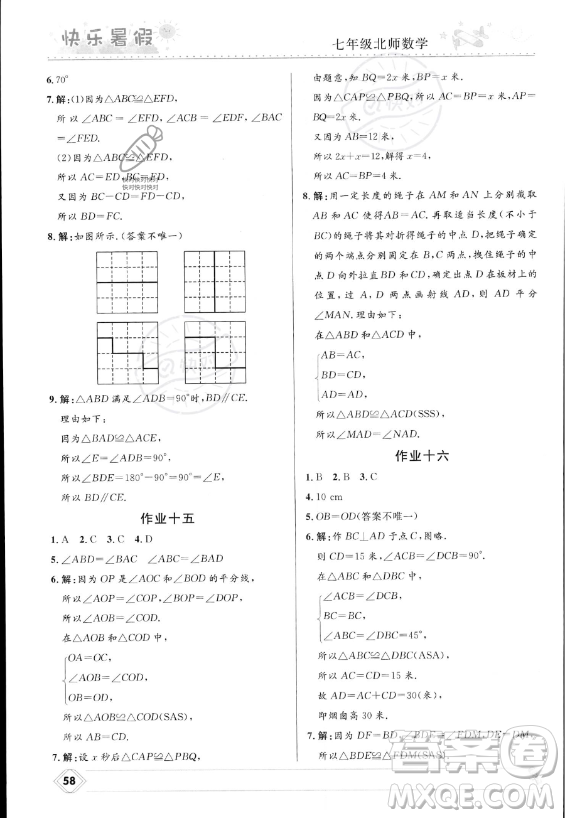 快乐暑假
七年级北师数学
6. 70°
7. 解:(1)因为△ABC≌△EFD,
所以∠ABC=∠EFD,∠ACB=∠EDF,∠BAC
=∠FED.
(2)因为△ABC≌△EFD,
所以AC=ED,BC=FD,
又因为BC-FC=FD-FC,
所以BD=FC.
8. 解:如图所示.(答案不唯一)
9. 解:△ABD满足∠ADB=90°时,BD∥CE.
理由如下:
因为△BAD≌△ACE,
所以∠ADB=∠E=90°.
所以∠BDE=180°-90°=90°=∠E.
所以BD∥CE.
作业十五
1. A 2. C 3. C 4. D
5. ∠ABD=∠BAC ∠ABC=∠BAD
6. 解:因为OP是∠AOC和∠BOD的平分线,
所以∠AOP=∠COP,∠BOP=∠DOP.
所以∠AOB=∠COD.
在△AOB和△COD中,
OA=OC,
∠AOB=∠COD,
OB=OD,
所以△AOB≌△COD(SAS).
7. 解:设x秒后△CAP≌△PBQ,
58
由题意,知BQ=2x米,BP=x米.
因为△CAP≌△PBQ,所以AP=BQ=2x米.
又因为AB=12米,
所以2x+x=12,解得x=4.
所以AC=BP=4米.
8. 解:用一定长度的绳子在AM和AN上分别截取
AB和AC使得AB=AC.再取适当长度(大于
BC)的绳子将其对折得绳子的中点D,把绳子的
两个端点分别固定在B,C两点,拽住绳子中
点D向外拉直BD和CD,确定出点D在板材上的
位置,过A,D两点画射线AD,则AD平分
∠MAN.理由如下:
在△ABD和△ACD中,
AB=AC,
BD=CD,
AD=AD,
所以△ABD≌△ACD(SSS),
所以∠MAD=∠NAD.
作业十六
1. B 2. B 3. C
4. 10 cm
5. OB=OD(答案不唯一)
6. 解:作BC⊥AD于点C,图略.
则CD=15米,∠ACB=∠DCB=90°.
在△ACB和△DCB中,
∠ACB=∠DCB,
BC=BC,
∠ABC=∠DBC=45°,
所以△ACB≌△DCB(ASA).
所以AC=CD=15米.
故DA=AC+CD=30米,
即烟囱高30米.
7. 解:因为DF=BD,∠BDE=∠FDM,DE=DM,
所以△BDE≌△FDM(SAS).